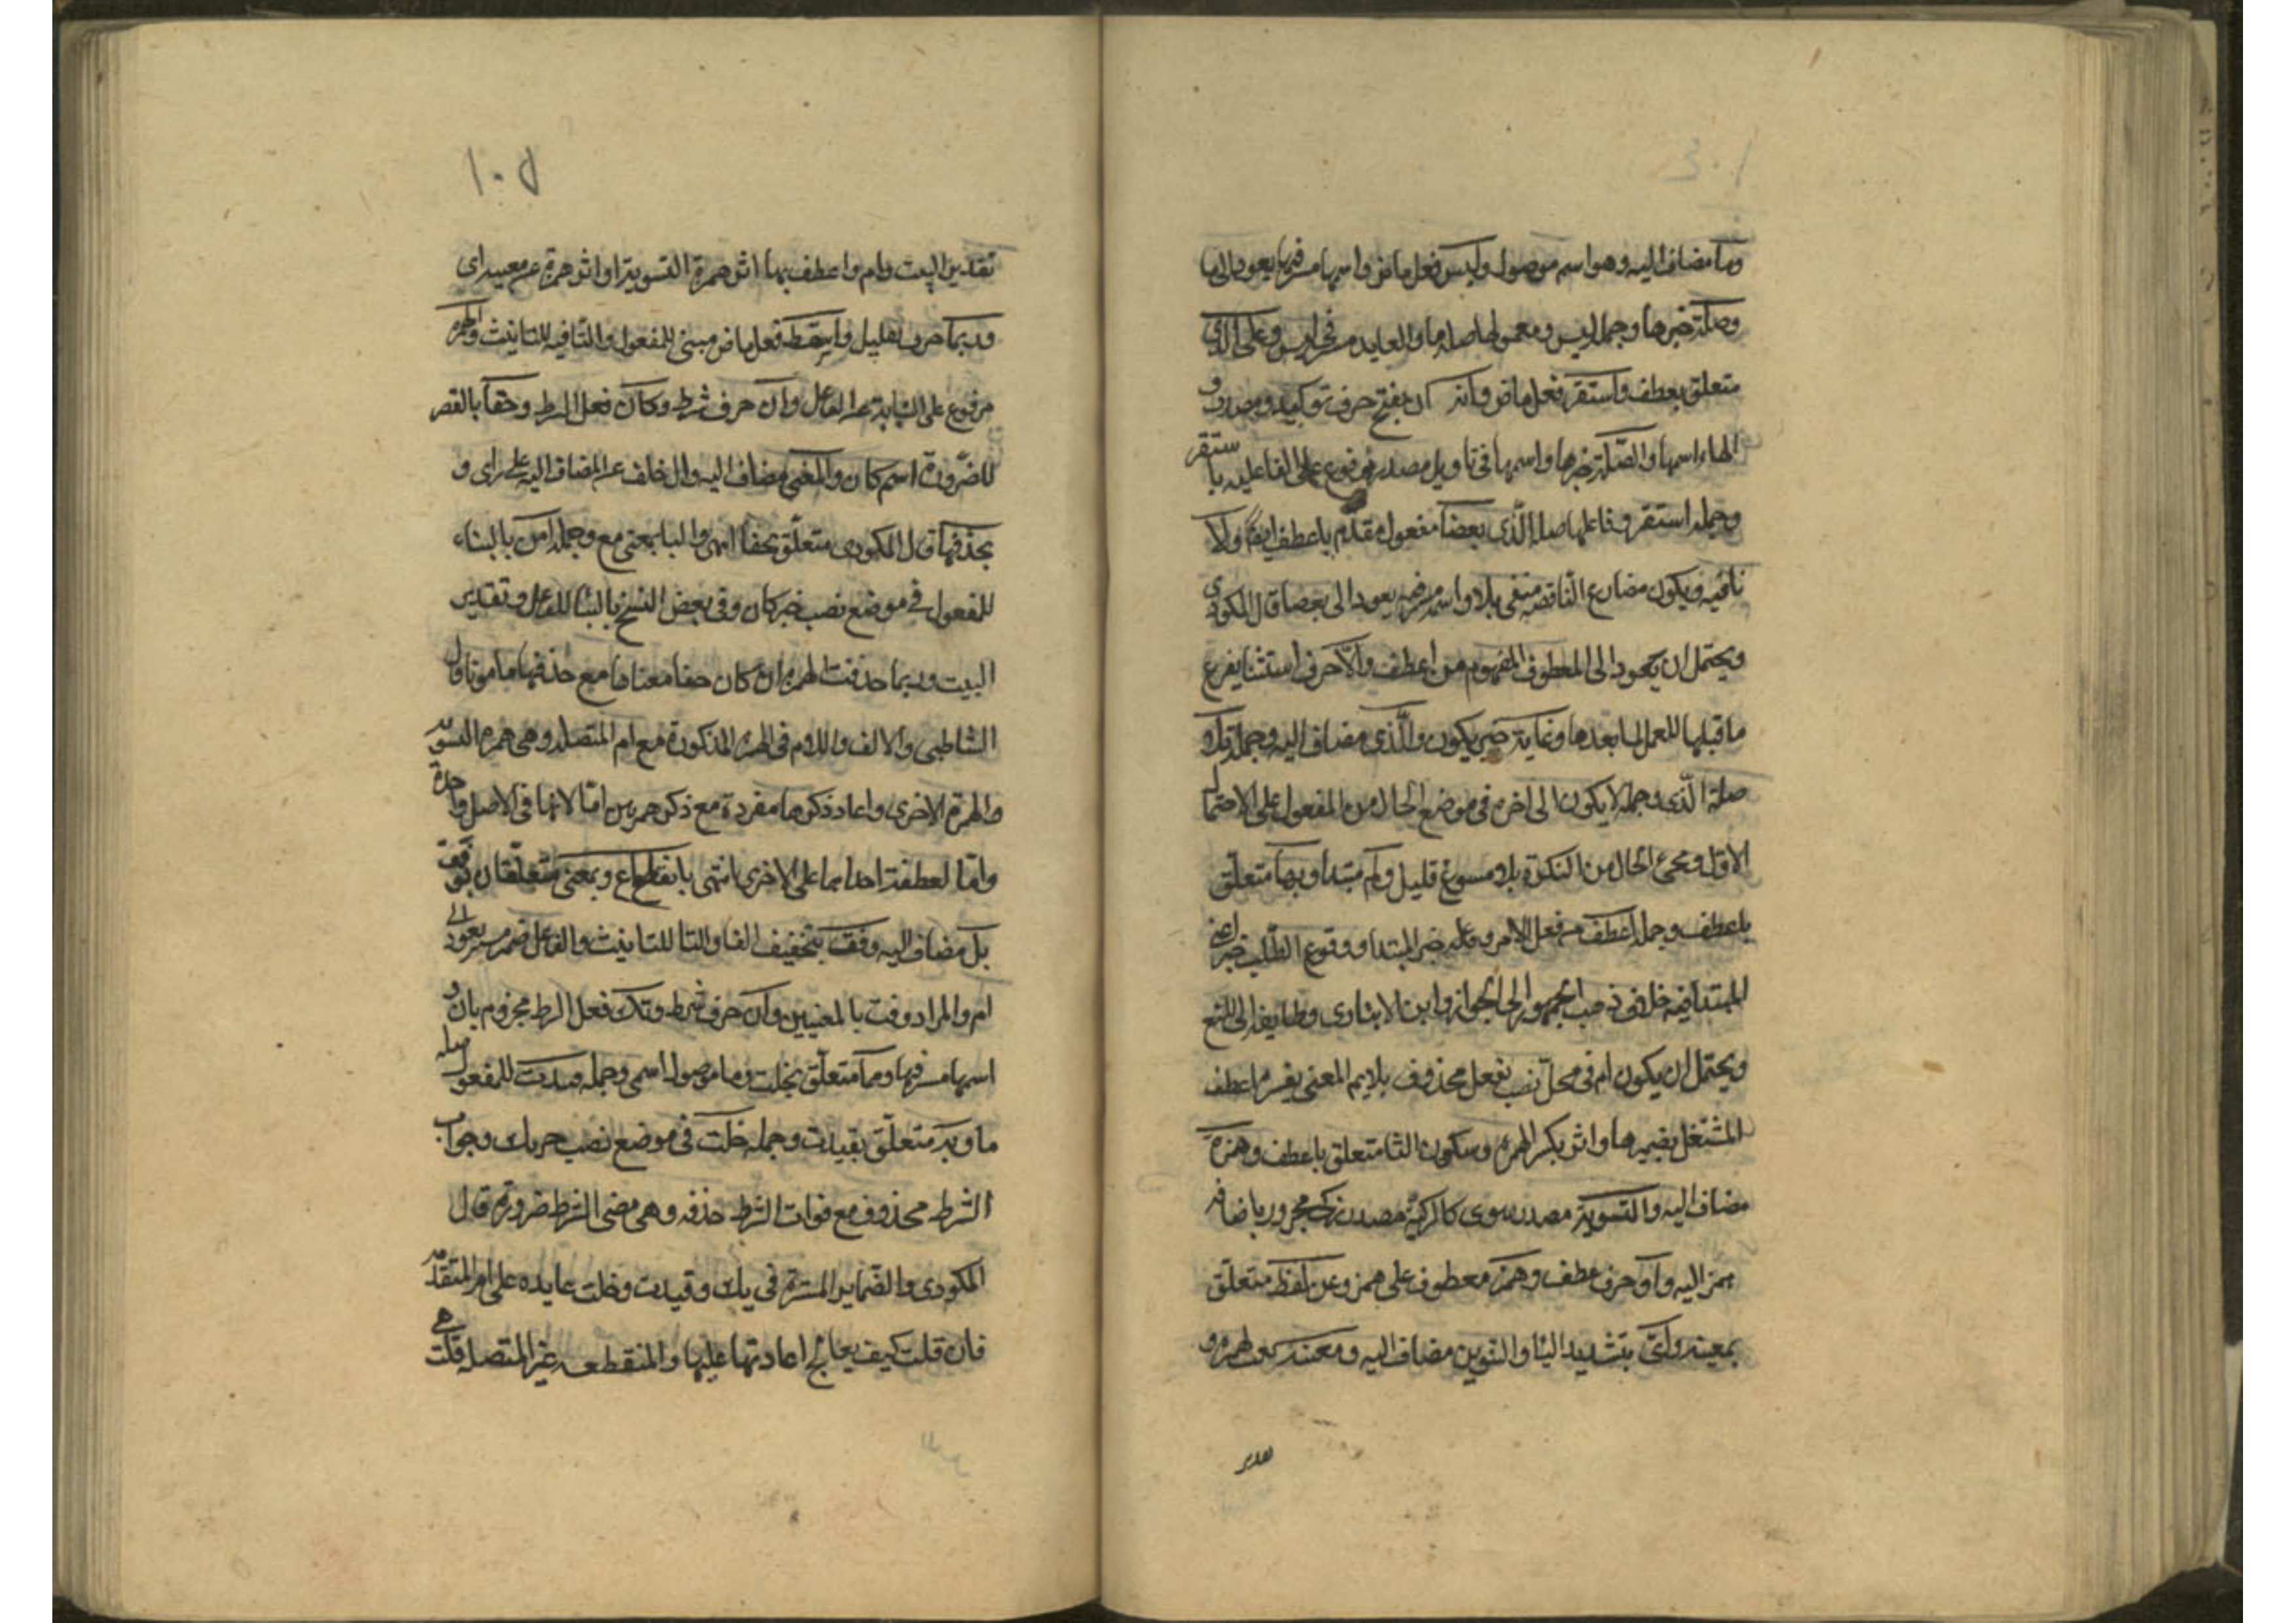 وما مضاف اليه وهو اسم موصول وليس فعل ماض واسمها مستتر فيها يعود الى ما
وصلته خبرها وجملة ليس ومعمولها صلة ما والعايد مستتر في ليس وعلى الذى
متعلق بعطف واستقر فعل ماض وانه ان بفتح حرف توكيد ومصدر و
الهاء اسمها والصلة خبرها واسمها في تاويل مصدر مرفوع على الفاعليه با ستقر
وجملة استقر وفاعلها صلة الذى بعضا مفعول مقدم باعطف ايضا ولا
نافيه ويكون مضارع الناقصه منفي بلا واسمه يعود الى بعضا قال المكودى
ويحتمل ان يعود الى المعطوف المفهوم من اعطف والا حرف استثنا يفرغ
ما قبلها للعمل لما بعدها وغاية خبر يكون والذى مضاف اليه وجملة تلا
صلة الذى وجملة لا يكون الى اخره في موضع الحال من المفعول على الاحتمال
الاول ومجئ الحال من النكرة بلا مسوغ قليل وام مبتدا وبها متعلق
باعطف وجملة اعطف من فعل الامر وفاعله خبر المبتدا ووقوع الطلب خبرا عن
المبتدا فيه خلاف ذهب الجمهور الى الجواز وابن الانبارى وطايفه الى المنع
ويحتمل ان يكون ام في محل نصب بفعل محذوف يلايم المعنى يفسره اعطف
المشتغل بضميرها واثر بكسر الهمزه وسكون الثا متعلق باعطف وهمزة
مضاف اليه والتسوية مصدر سوى كالتزكية مصدر زكى مجرور باضافه
همز اليه واو حرف عطف وهمزة معطوف على همز وعن لفظ متعلق
بمعنيه واى بتشديد اليا والتنوين مضاف اليه ومعنيه نعت لهمزه و
تقدير
١٠٥
تقدير البيت وام واعطف بها اثر همزة التسوية او اثر همزة عن معنيه اى
وربما حرف تقليل واسقطت فعل ماض مبني للمفعول والتا فيه للتانيث والهمزه
مرفوع على النيابة عن الفاعل وان حرف شرط وكان فعل الشرط وخفا بالقصر
للضرورة اسم كان والمعنى مضاف اليه وال خلف عن المضاف اليه على راى و
بحذفها قال المكودى متعلق بخفا انتهى والبا بمعنى مع وجملة امن بالبناء
للمفعول في موضع نصب خبر كان وفي بعض النسخ بالبنا للفاعل وتقدير
البيت وربما حذفت الهمزه ان كان خفا معناها مع حذفها مامونا قال
الشاطبي والالف واللام في الهمزة المذكورة مع ام المتصلة وهي همزه التسويه
والهمزة الاخرى واعاد ذكرها مفردة مع ذكر همزتين اما لانها في الاصل واحدة
واما لعطفه احداهما على الاخرى انتهى بانقطاع وبمعنى متعلقان بوفت
بل مضاف اليه وفت بتخفيف الفا والتا للتانيث والفاعل ضمير مستتر يعود الى
ام والمراد وفت بالمعنيين وان حرف شرط وتك فعل الشرط مجزوم بان و
اسمها مستتر فيها ومما متعلق بخلت وما موصول اسمي وجملة قيدت للمفعول صلة
ما وبه متعلق بقيدت وجملة خلت في موضع نصب خبر تك وجواب
الشرط محذوف مع فوات الشرط حذفه وهي مضي الشرط ضرورة قال
المكودى والضماير المستترة في تك وقيدت وخلت عايده على ام المتقدمه
فان قلت كيف يصح اعادتها عليها والمنقطعه غير المتصله قلت هي